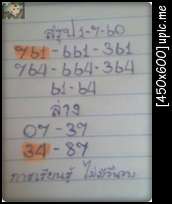 สรุป 1-7-60
761-661-361
764-664-364
61-64
ล่าง
07-37
34-87
การเรียนรู้ ไม่มีวันจบ
[450x600] upic.me